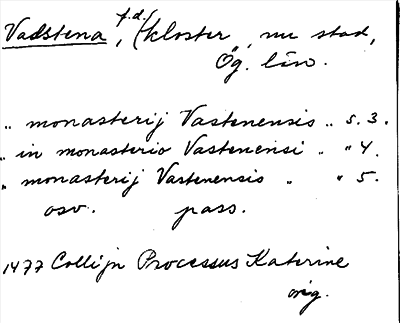 Vadstena, f.d. (kloster, nu stad,
Ög. län.
„ monasterij Vastenensis „ s. 3.
„ in monasterio Vastenensi „ " 4.
„ monasterij Vastenensis „ " 5.
osv. pass.
1477 Collijn Processus Katerine
orig.